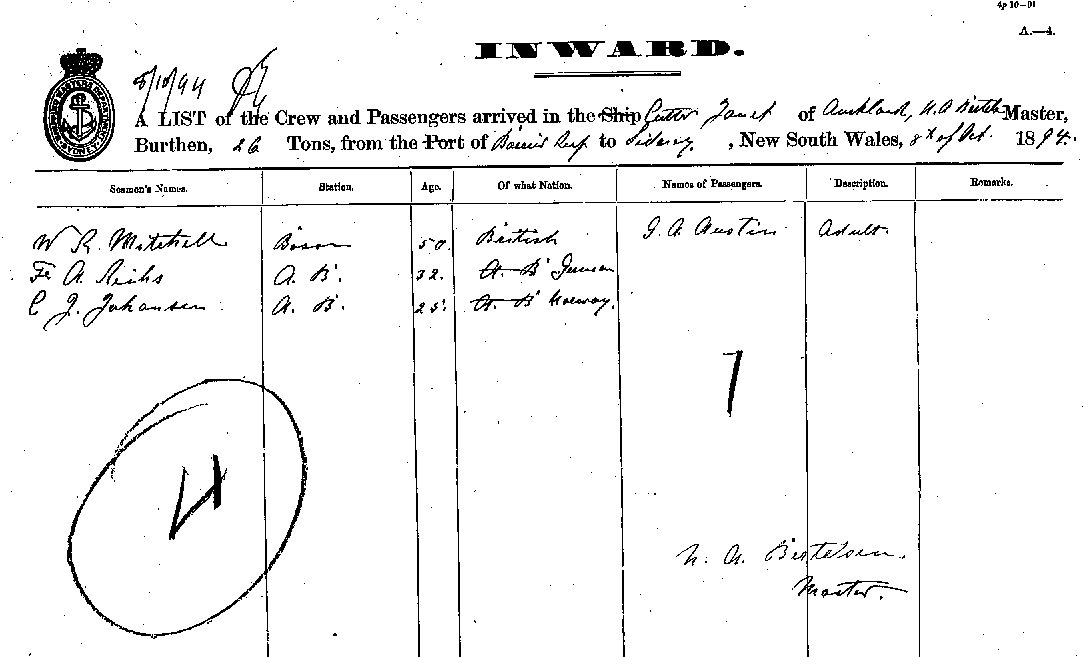 4p 10—01
A.—4.
INWARD.
8/10/94
A LIST of the Crew and Passengers arrived in the Ship Cutter Janet of Auckland, N A Master,
Burthen, 26 Tons, from the Port of Barrier Reef to Sidney, New South Wales, 8th of Oct. 1894.
Seamen's Names. Station. Age. Of what Nation. Names of Passengers. Description. Remarks.
W R. Mitchell Bosun 50. British J. A. Austin Adult.
A. B. 32. A. B German
C J. Johansen A. B. 25. A. B Norway.
1
4
N. A. Bertelsen.
Master.